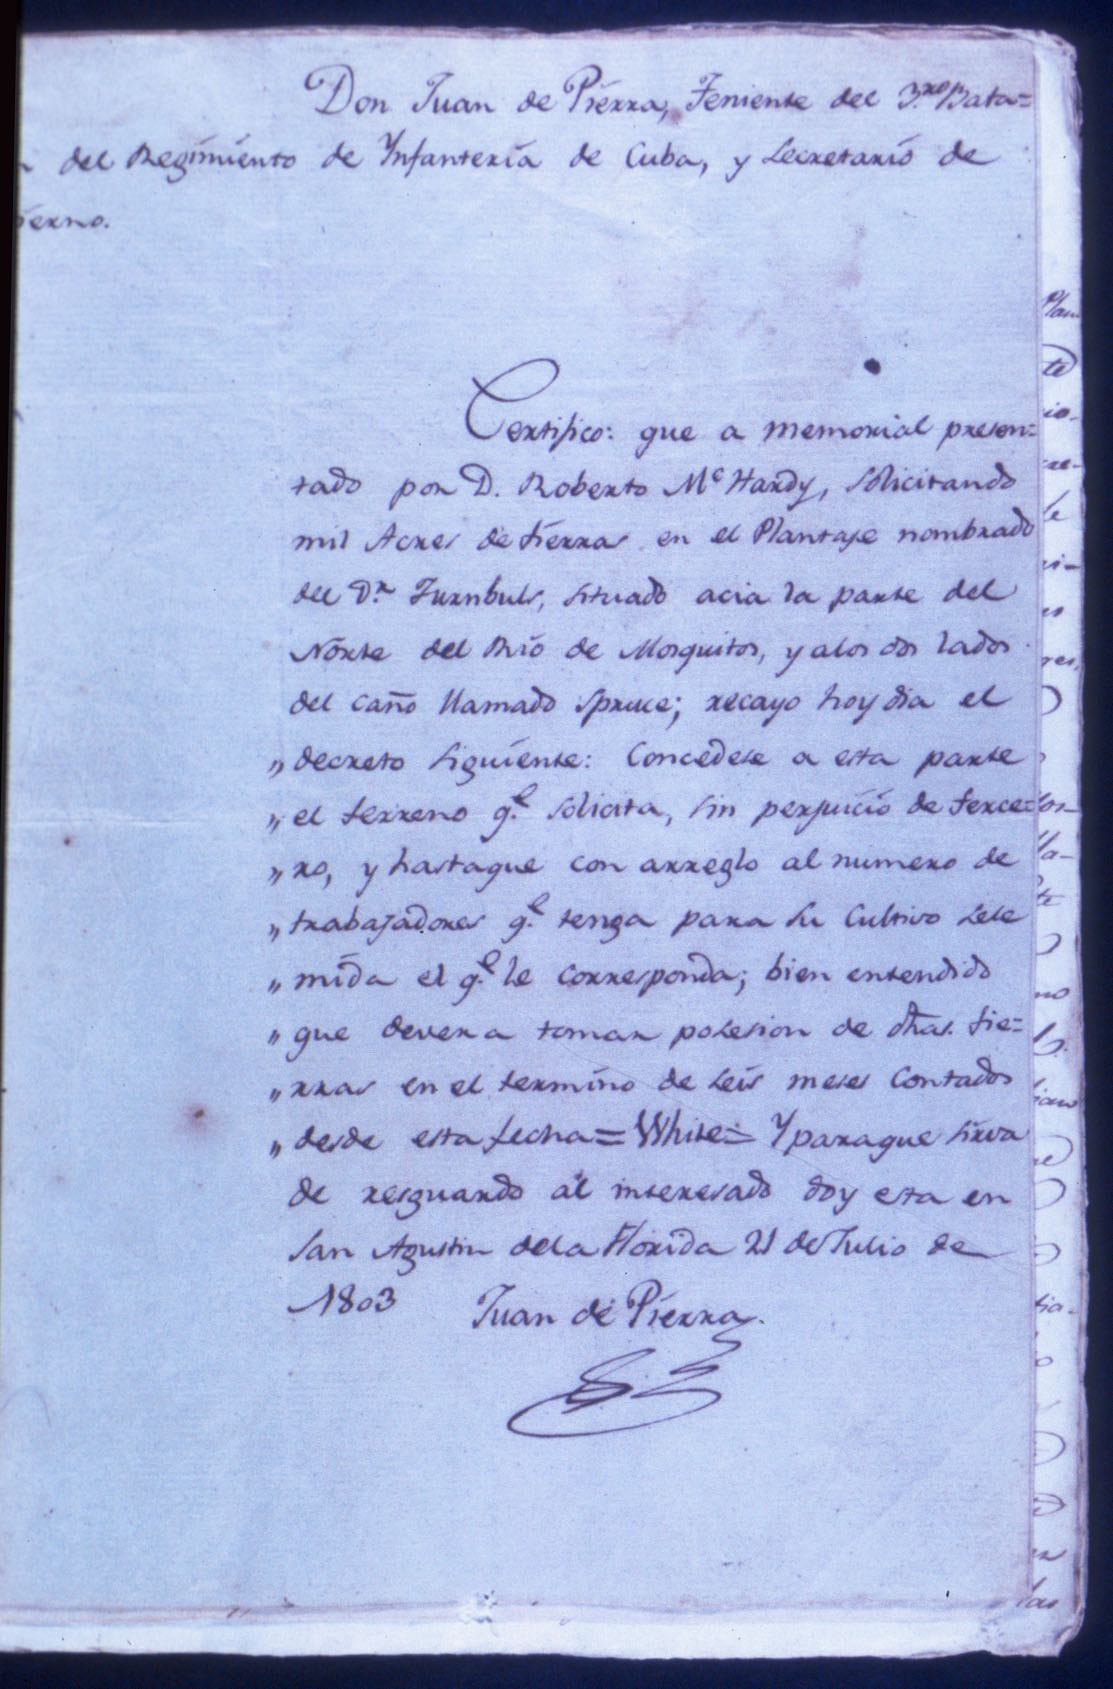 Don Juan de Pierra, Teniente del 3.ro Bata=
del Regimiento de Ynfanteria de Cuba, y Secretario de
ierno.
Certifico: que a memorial presen=
tado por D. Roberto Mc Hardy, solicitando
mil Acres de tierras en el Plantaje nombrado
del Dr. Turnbuls, situado acia la parte del
Norte del Rio de Mosquitos, y alos dos lados
del caño llamado Spruce; recayo hoy dia el
„ decreto siguiente: Concedese a esta parte
„ el terreno q.e solicita, sin perjuicio de terce=
„ ro, y hastaque con arreglo al numero de
„ trabajadores q.e tenga para su Cultivo sele
„ mida el q.e le corresponda; bien entendido
„ que devera tomar posesion de dhas. tie=
„ rras en el termino de seis meses contados
„ desde esta fecha = White = Y paraque sirva
de resguardo al interesado doy esta en
San Agustin dela Florida 21 de Julio de
1803 Juan de Pierra.